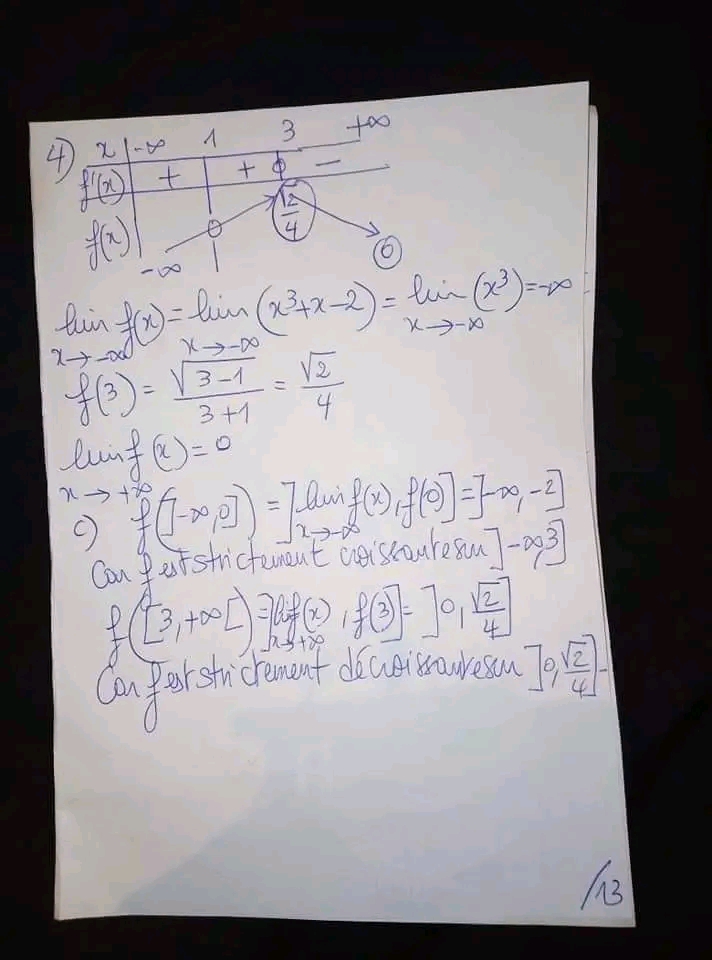 4) x -∞ 1 3 +∞
f'(x) + + 0 -
f(x) -∞ 0 √2/4 0
lim f(x) = lim (x³+x-2) = lim (x³) = -∞
x→-∞ x→-∞ x→-∞
f(3) = √(3-1)/(3+1) = √2/4
lim f(x) = 0
x→+∞
c) f(]-∞,0]) = ]lim f(x), f(0)] = ]-∞,-2]
x→-∞
Car f est strictement croissante sur ]-∞,3]
f([3,+∞[) = ]lim f(x), f(3)] = ]0, √2/4]
x→+∞
Car f est strictement décroissante sur ]0, √2/4] -
/13